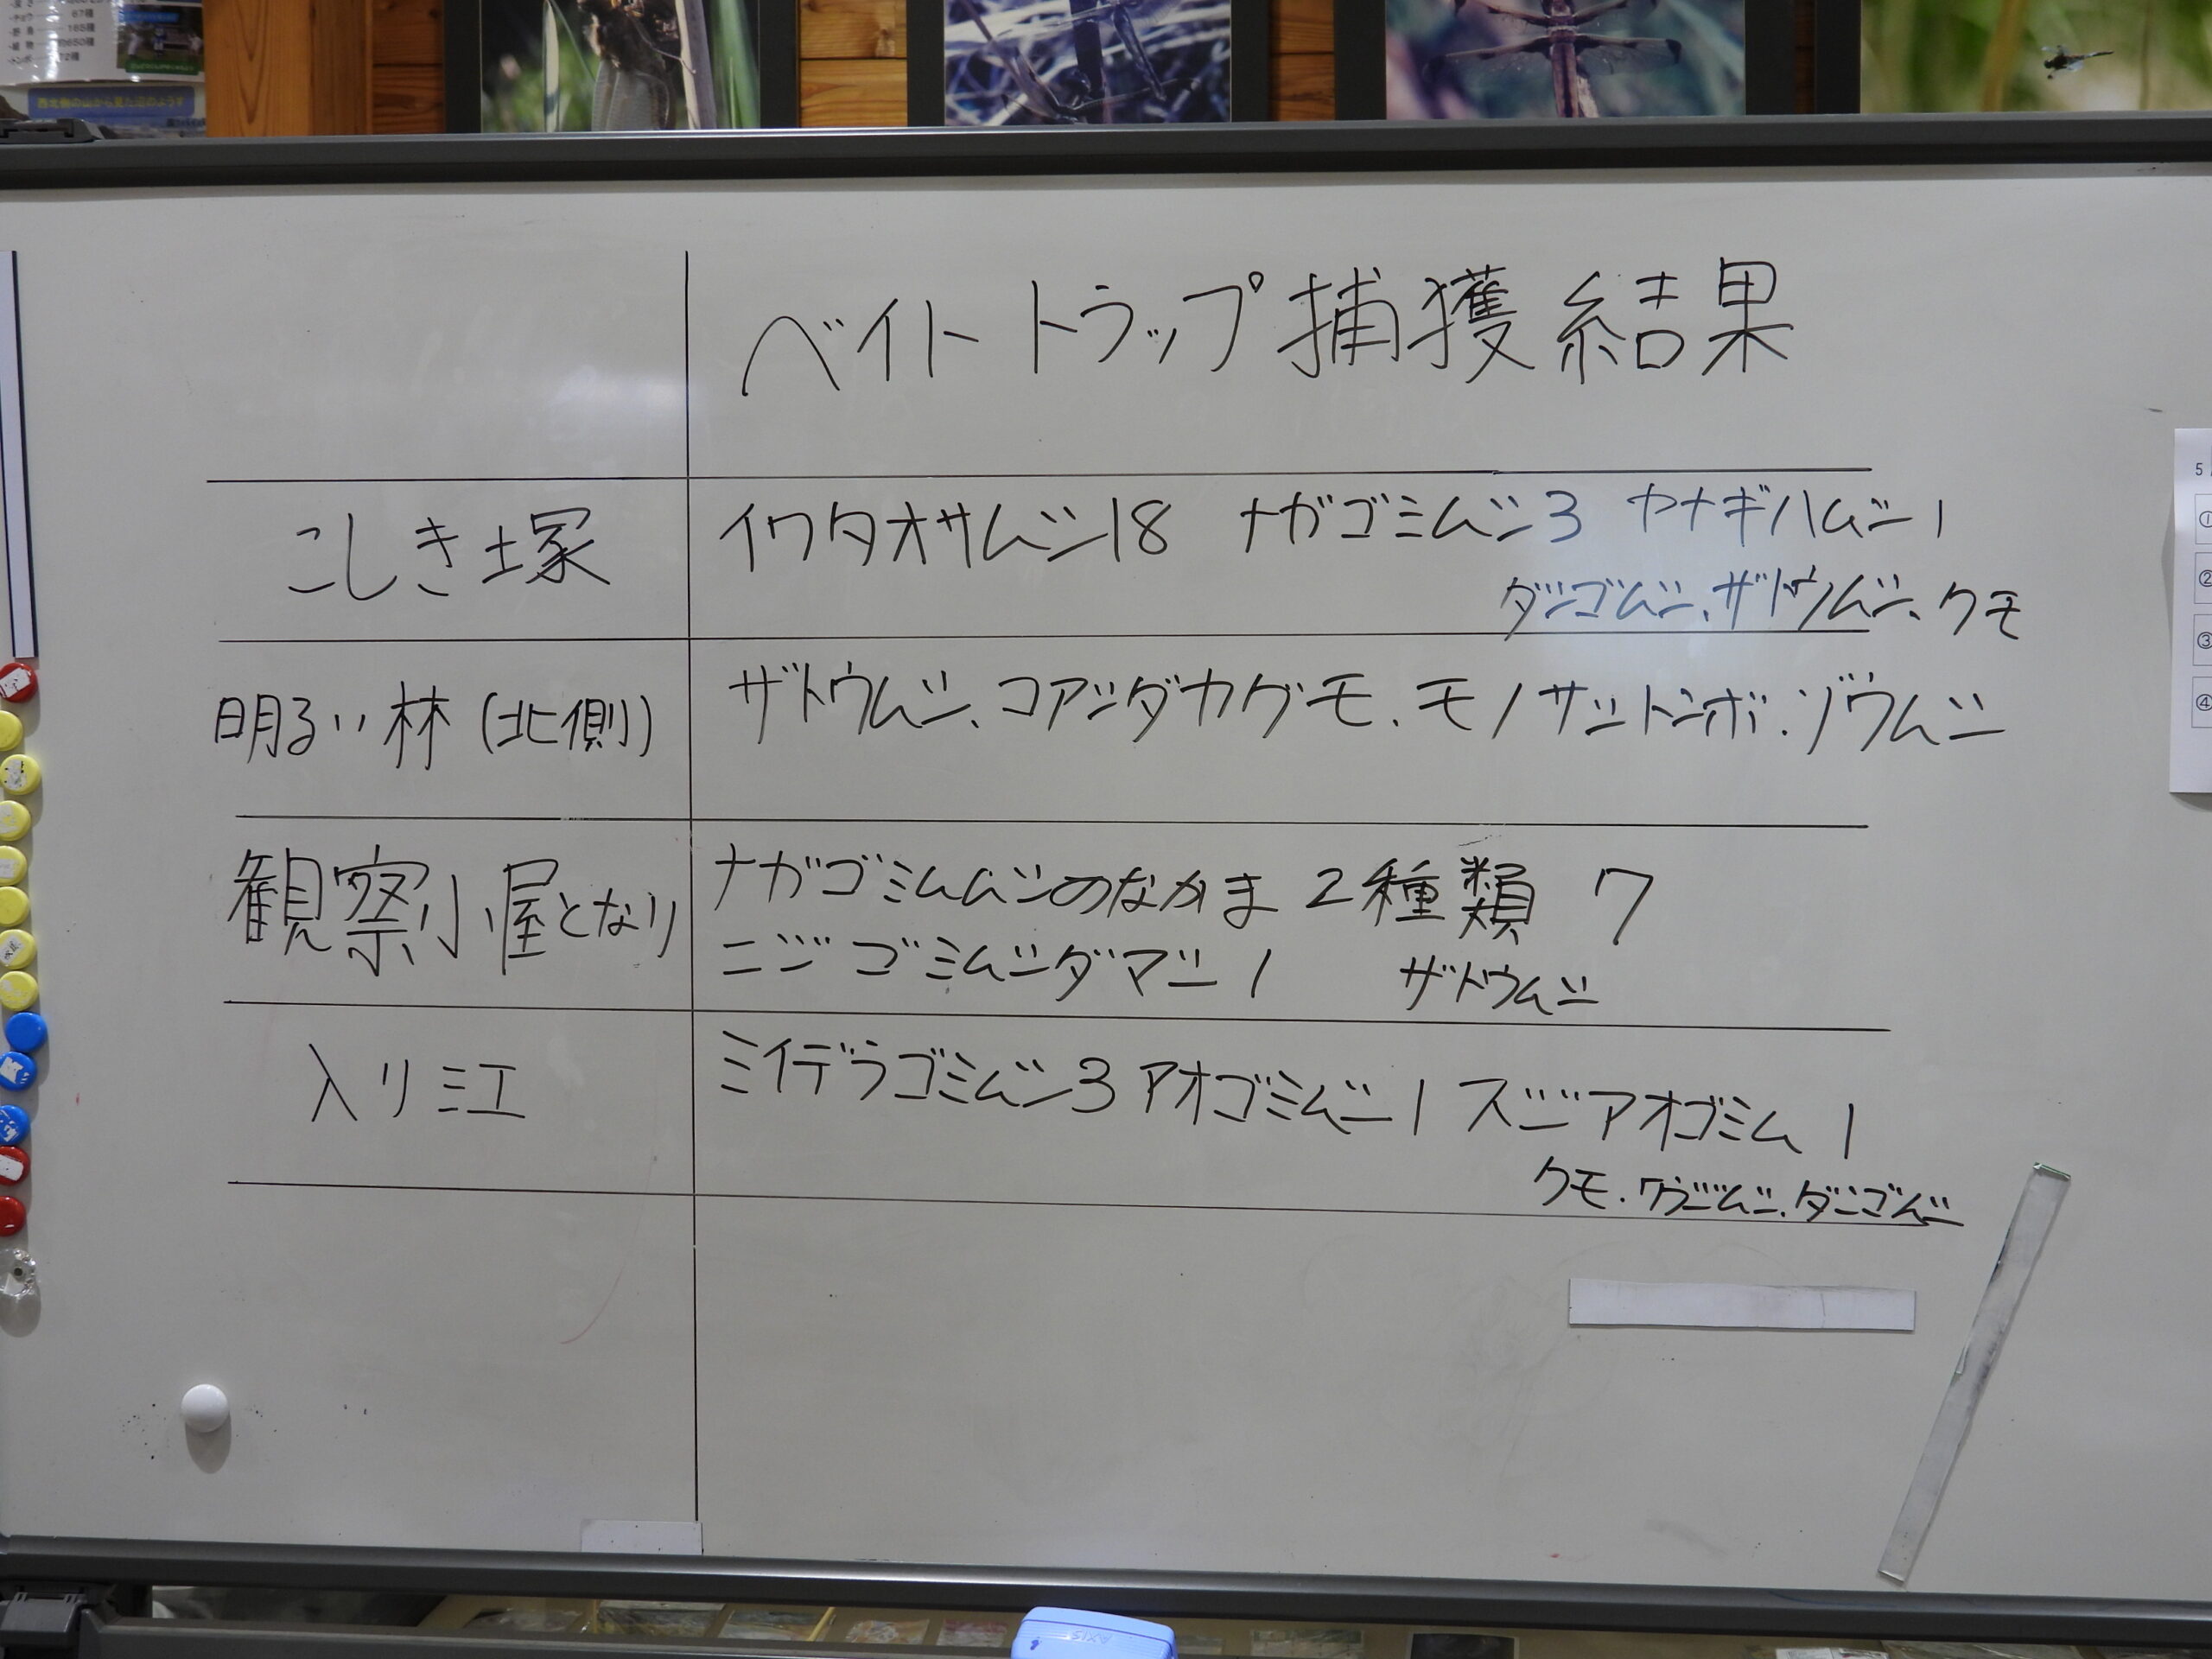 ベイトトラップ捕獲結果
こしき塚
イワタオサムシ18 ナガゴミムシ3 ヤナギハムシ1
ダンゴムシ、ザトウムシ、クモ
明るい林(北側)
ザトウムシ、コアシダカグモ、モノサシトンボ、ゾウムシ
観察小屋となり
ナガゴミムムシのなかま 2種類 7
ニジゴミムシダマシ1 ザトウムシ
入り江
ミイデラゴミムシ3 アオゴミムシ1 スジアオゴミム 1
クモ、ワラジムシ、ダンゴムシ
87種
165種
650種
72種
5
①
②
③
④
AXIS